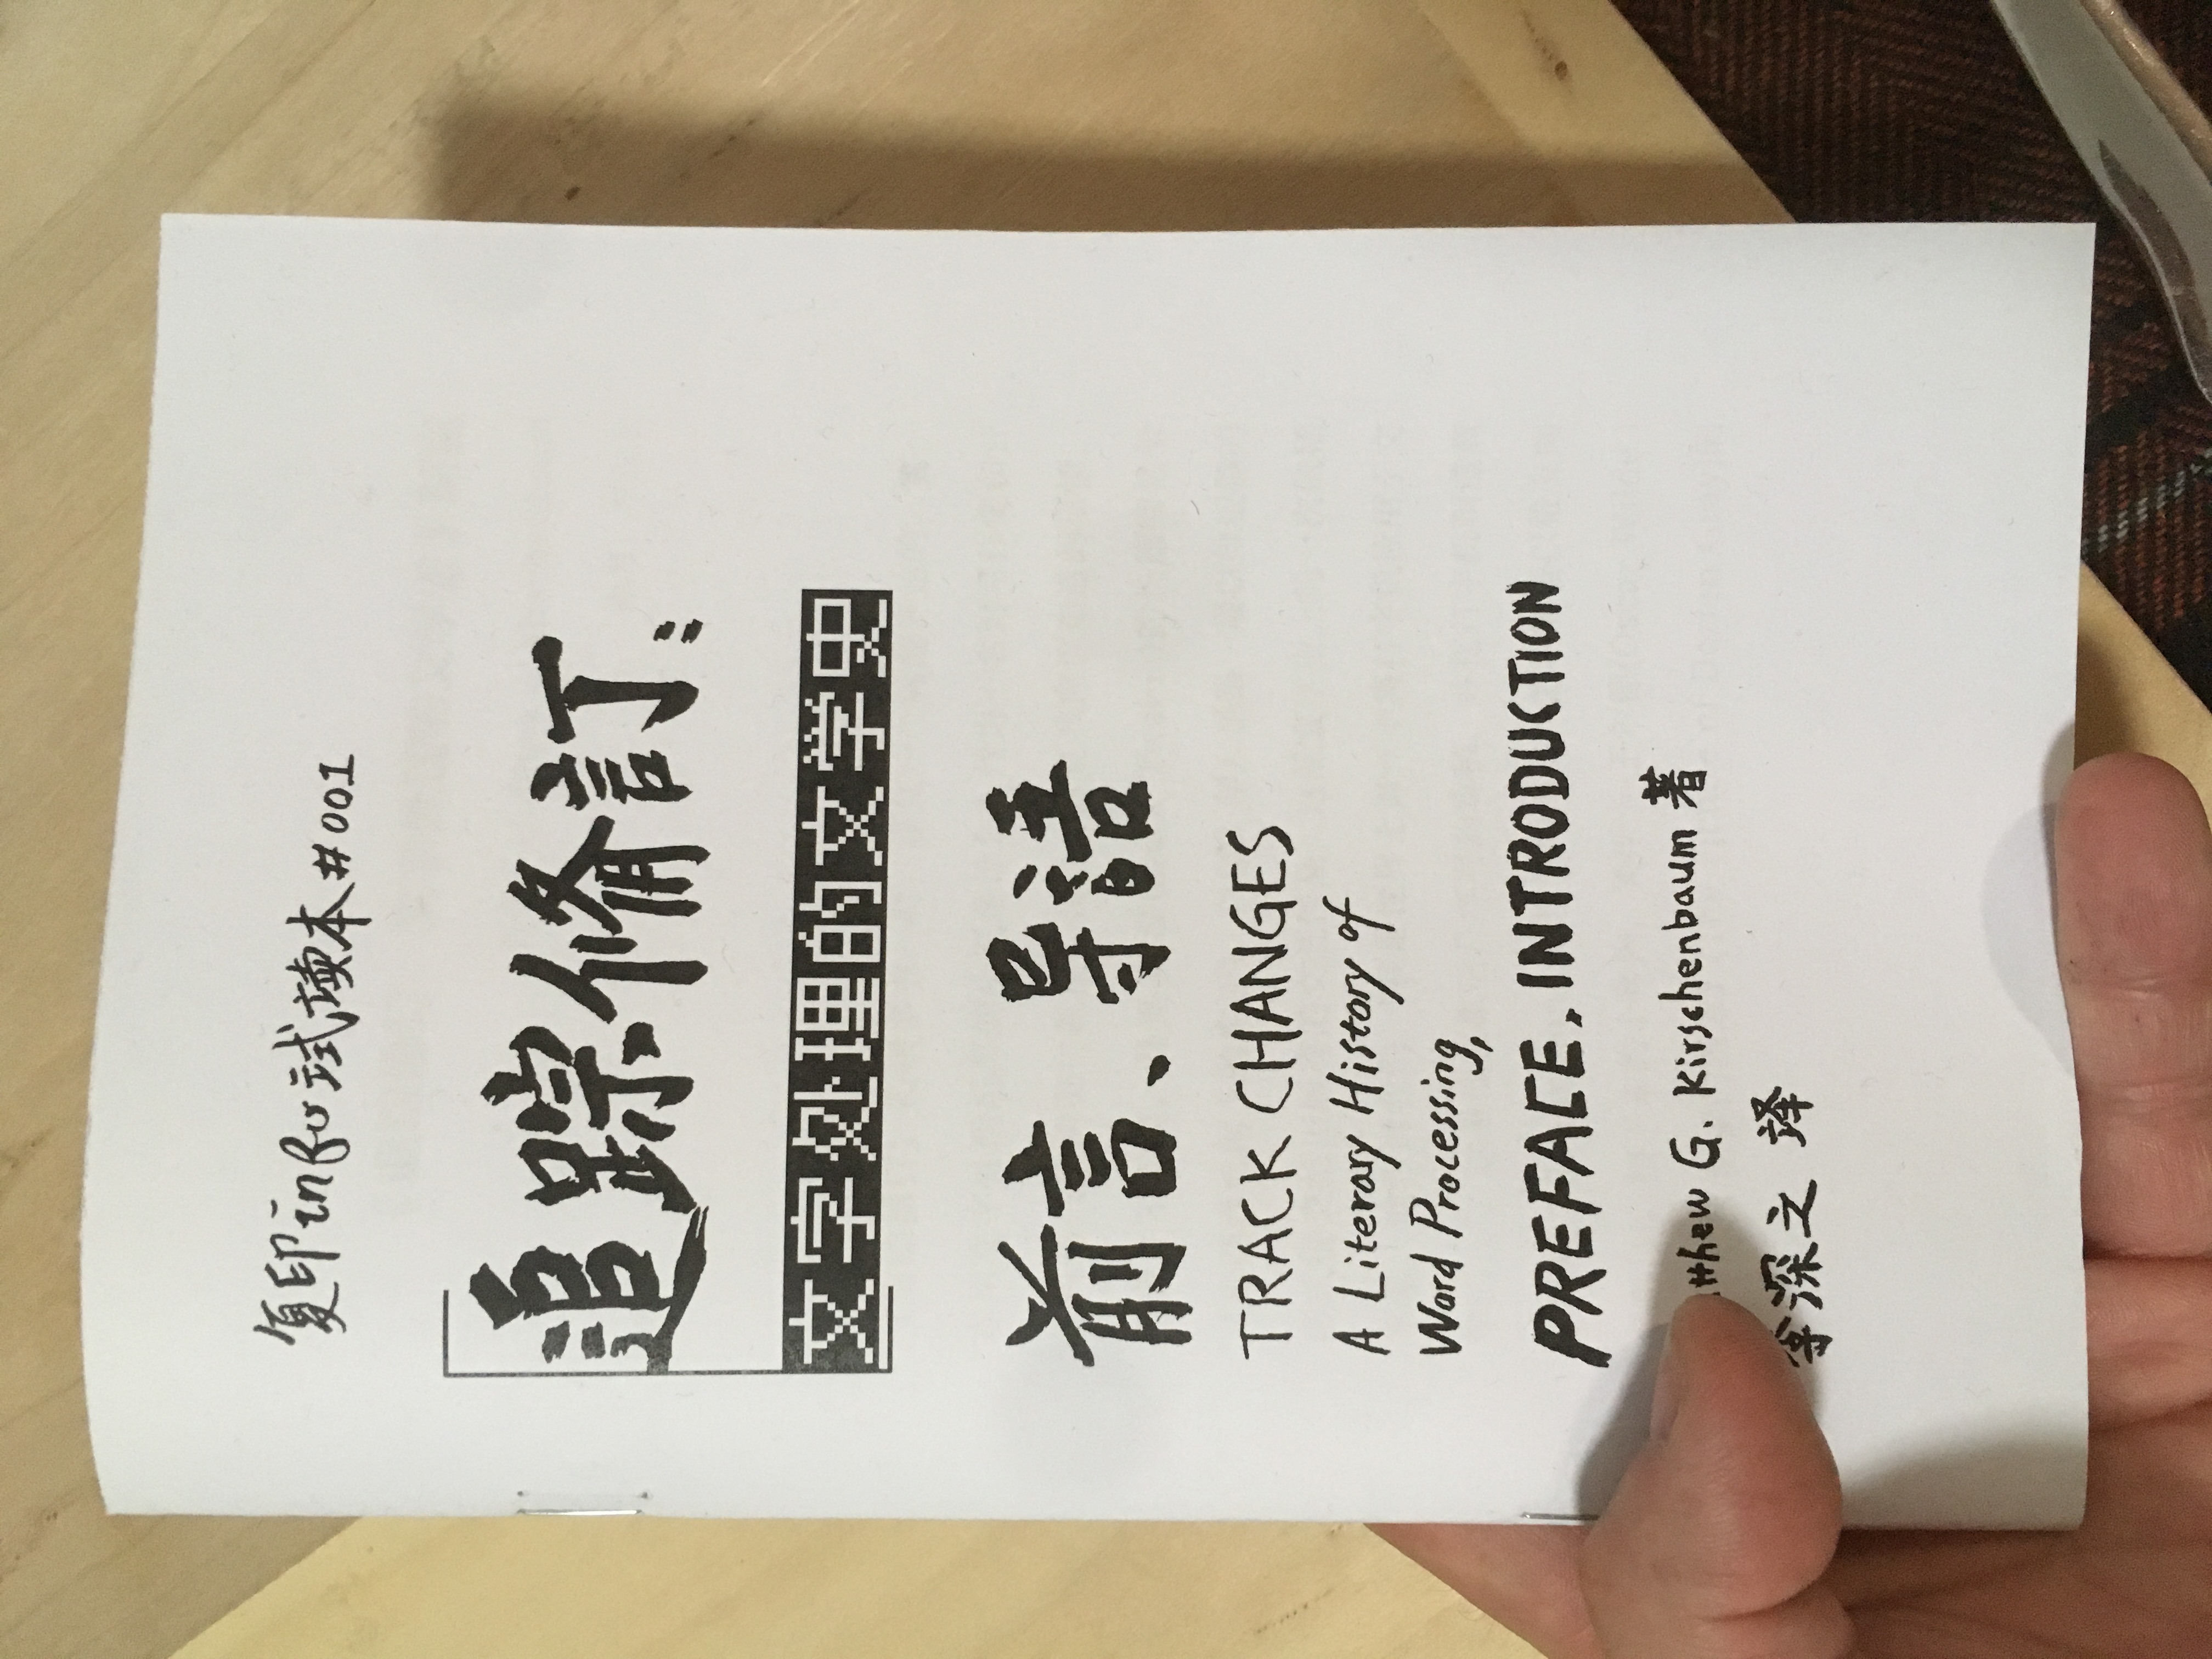 复印infu试读本#001
追踪脩訂：
文字处理的文学史
前言、导語
TRACK CHANGES
A Literary History of
Word Processing,
PREFACE. INTRODUCTION
tthew G. Kirschenbaum 著
李深之 译